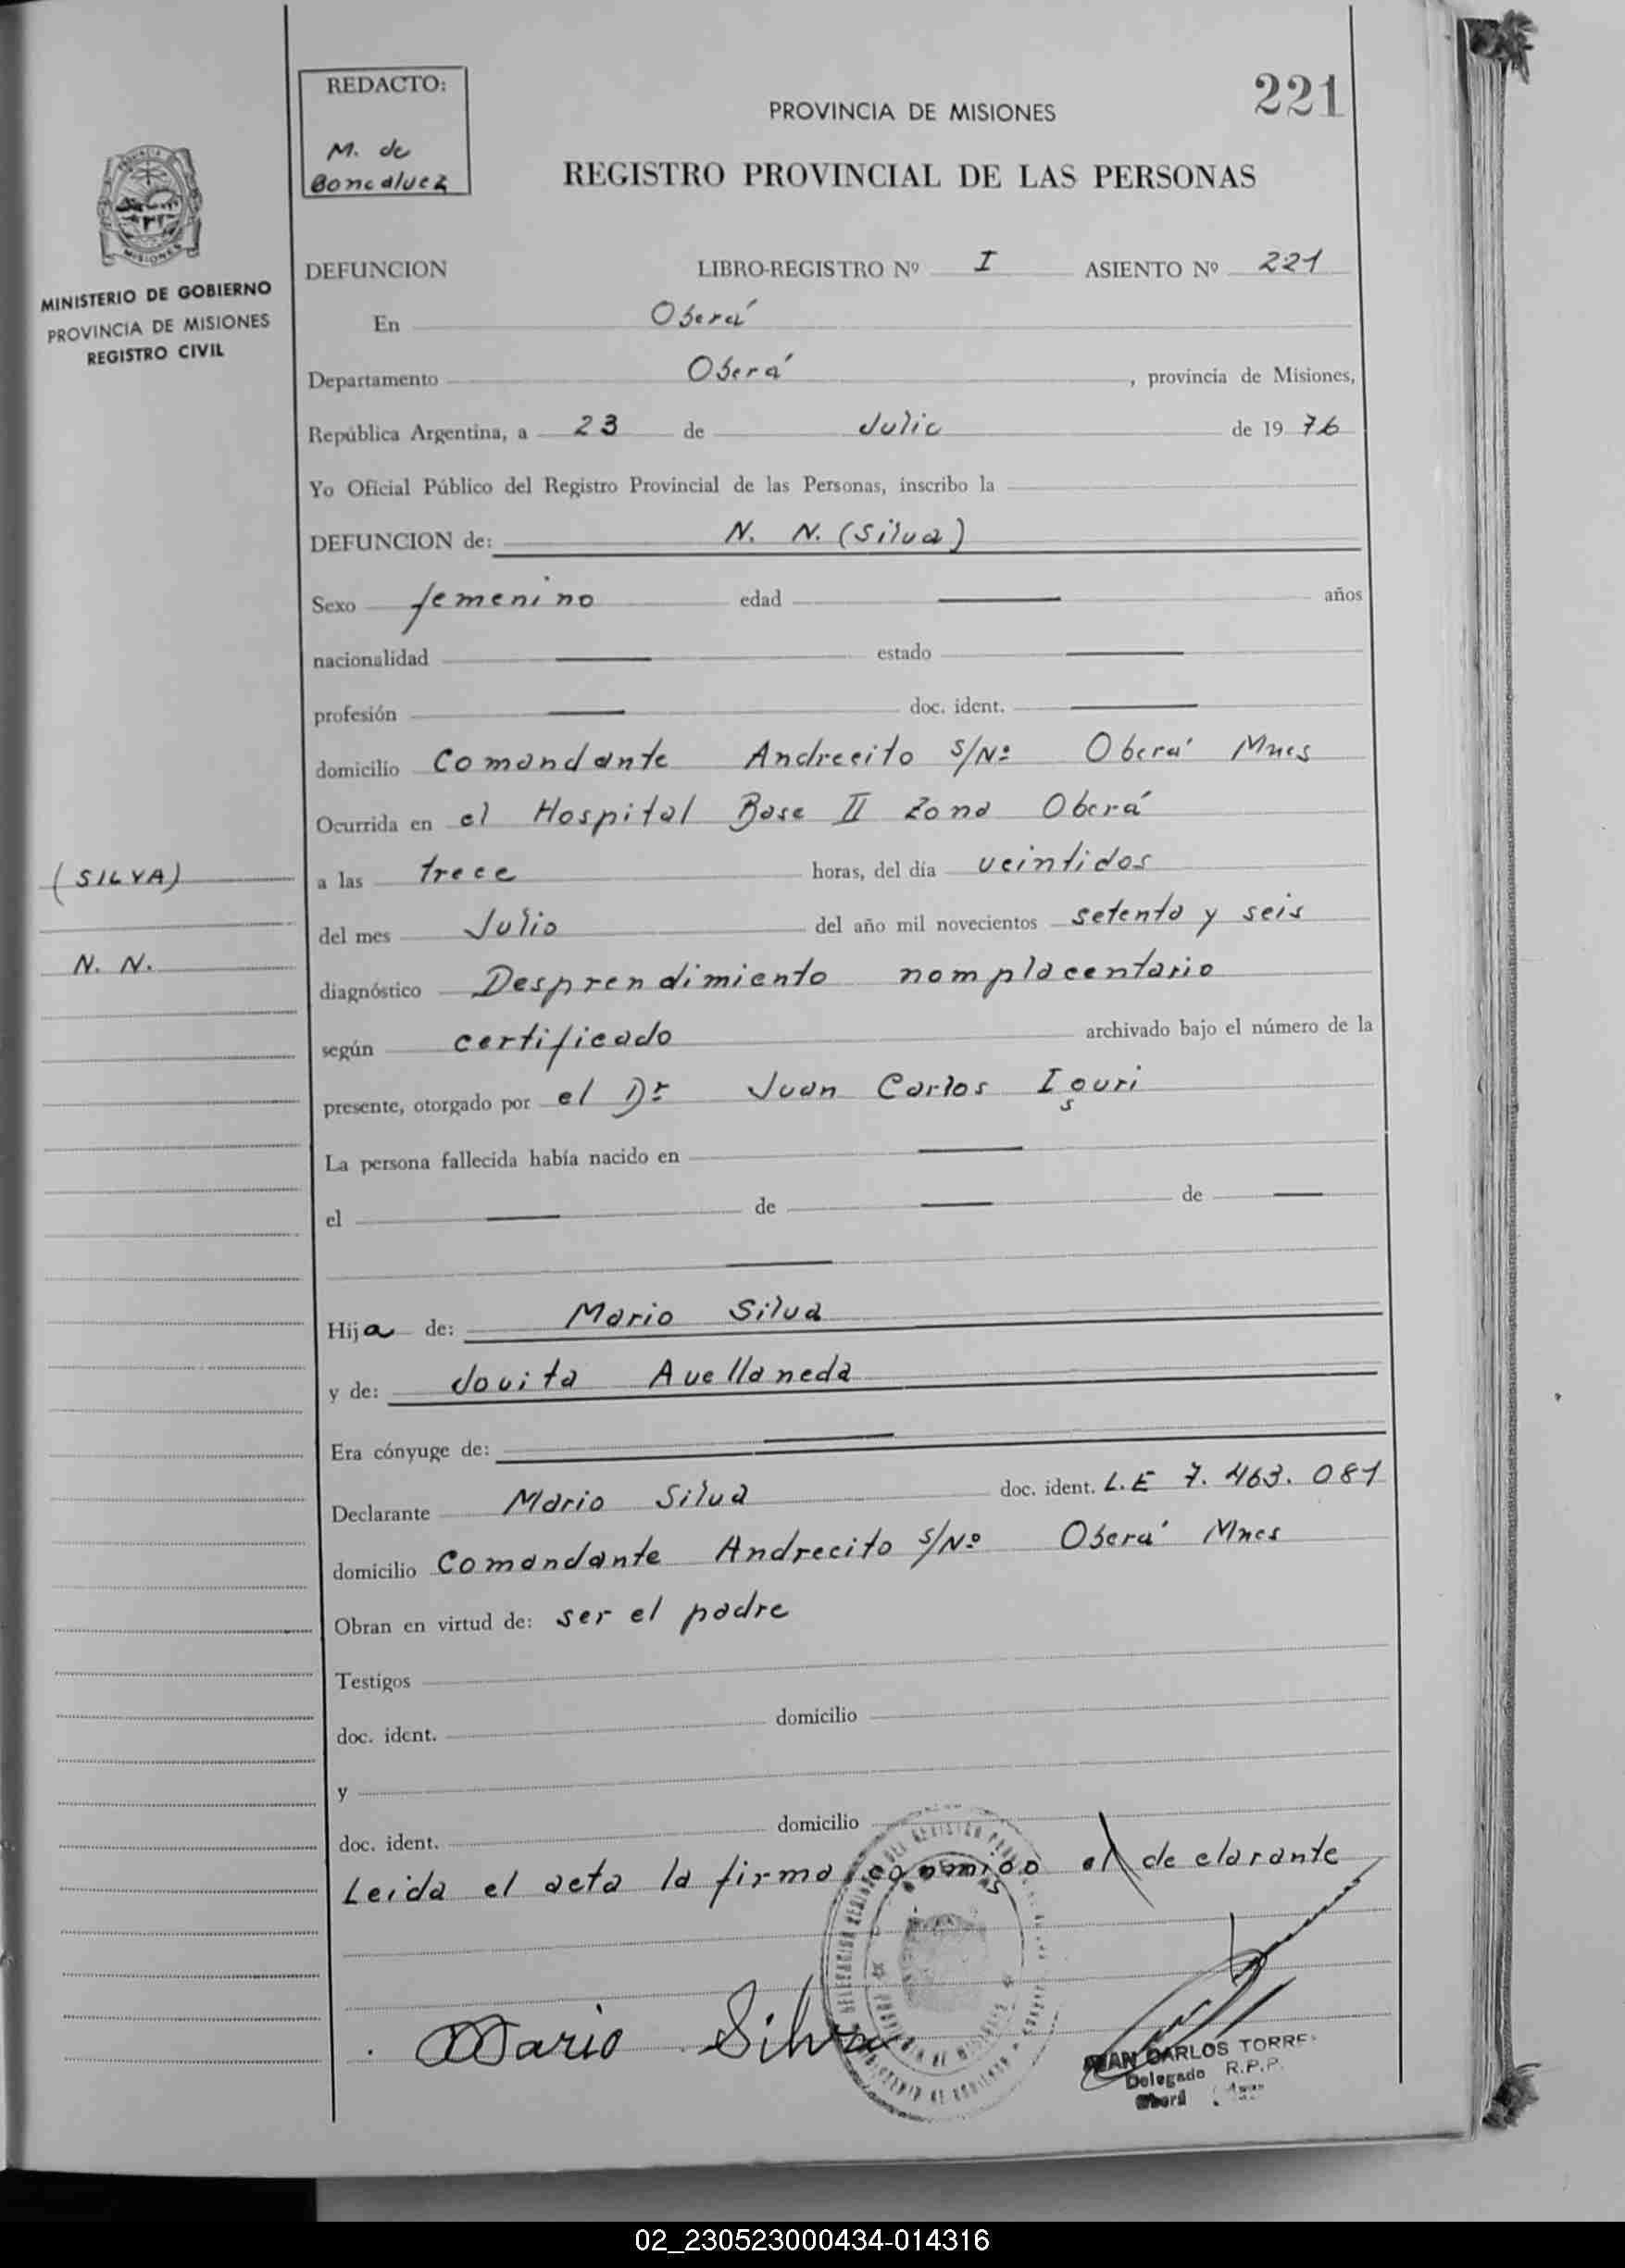 REDACTO:
M. de
Boncaluez
221
PROVINCIA DE MISIONES
REGISTRO PROVINCIAL DE LAS PERSONAS
MINISTERIO DE GOBIERNO
PROVINCIA DE MISIONES
REGISTRO CIVIL
DEFUNCION LIBRO-REGISTRO Nº I ASIENTO Nº 221
En Oberá
Departamento Oberá, provincia de Misiones,
República Argentina, a 23 de Julio de 1976
Yo Oficial Público del Registro Provincial de las Personas, inscribo la
DEFUNCION de: N. N. (Silva)
Sexo femenino edad años
nacionalidad estado
profesión doc. ident.
domicilio Comandante Andrecito S/Nº Oberá Mnes
Ocurrida en el Hospital Base II Zona Oberá
(SILVA)
a las trece horas, del día veintidos
del mes Julio del año mil novecientos setenta y seis
N. N.
diagnóstico Desprendimiento nomplacentario
según certificado archivado bajo el número de la
presente, otorgado por el Dr Juan Carlos
La persona fallecida había nacido en
el de de
Hija de: Mario Silva
y de: Jovita Avellaneda
Era cónyuge de:
Declarante Mario Silva doc. ident. L.E 7.463.081
domicilio Comandante Andrecito S/Nº Oberá Mnes
Obran en virtud de: ser el padre
Testigos
doc. ident. domicilio
y
doc. ident. domicilio
Leida el acta la firma conmigo el declarante
Mario Silva
JUAN CARLOS TORRES
Delegado R.P.P.
Oberá
02_230523000434-014316